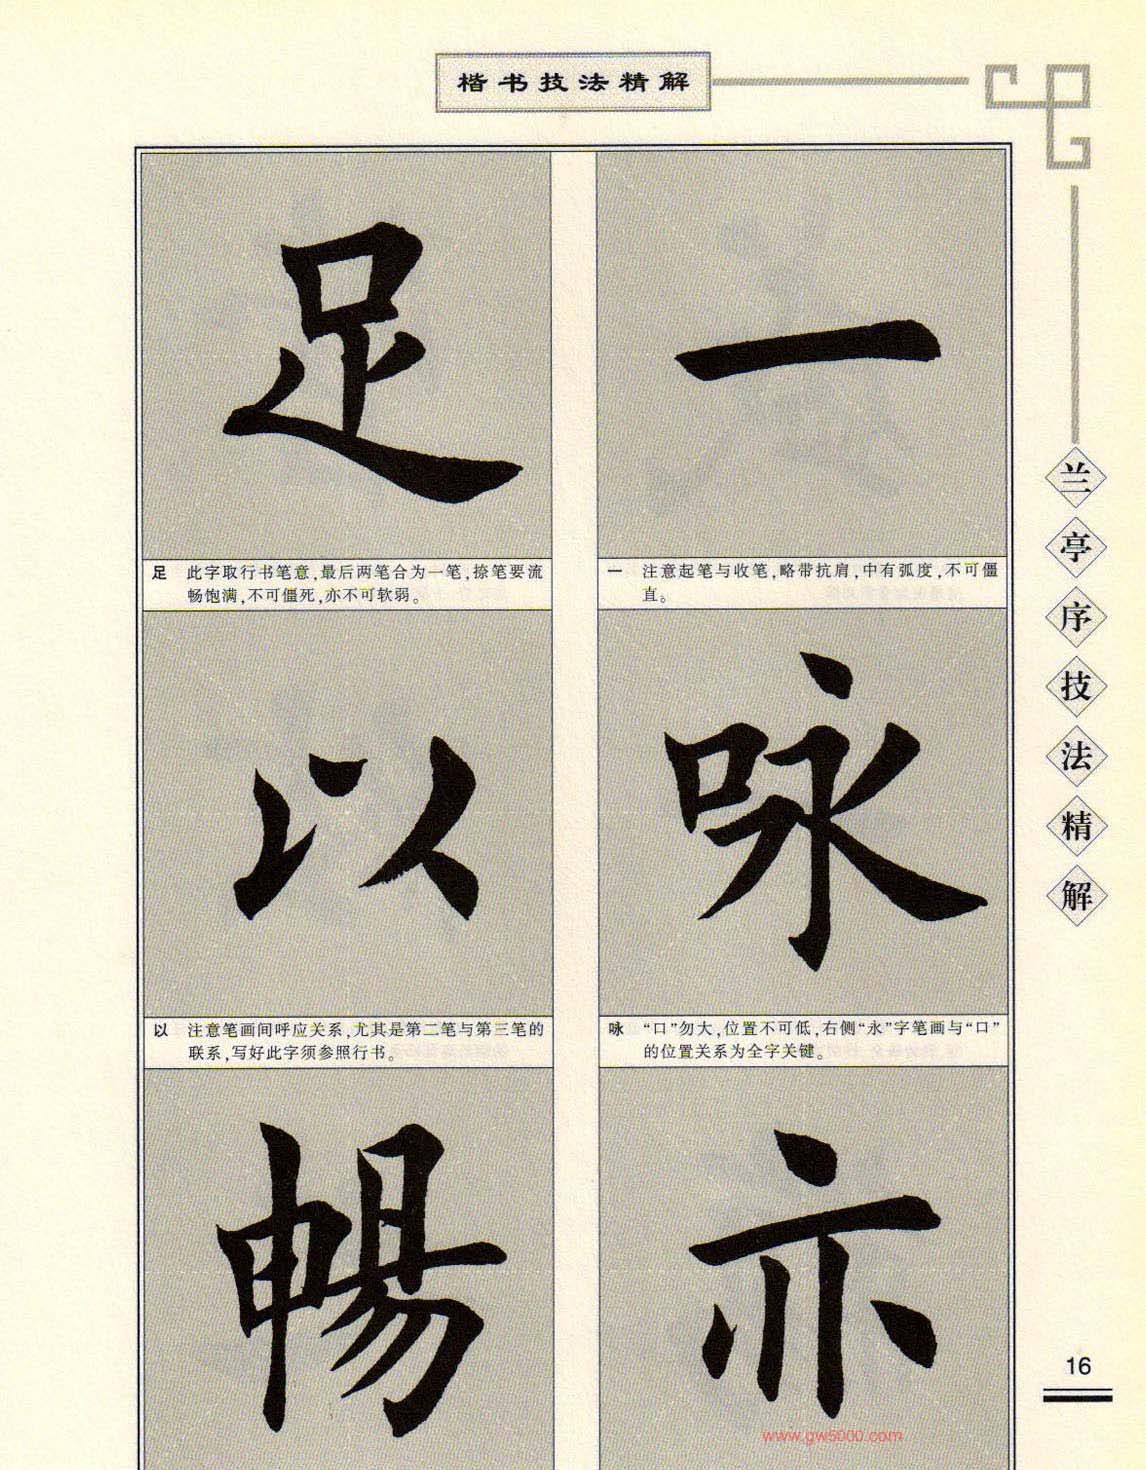 楷书技法精解
一
一 注意起笔与收笔,略带抗肩,中有弧度,不可僵
直。
咏
咏 “口”勿大,位置不可低,右侧“永”字笔画与“口”
的位置关系为全字关键。
亦
足
足 此字取行书笔意,最后两笔合为一笔,捺笔要流
畅饱满,不可僵死,亦不可软弱。
以
以 注意笔画间呼应关系,尤其是第二笔与第三笔的
联系,写好此字须参照行书。
暢
兰亭序技法精解
16
www.gw5000.com